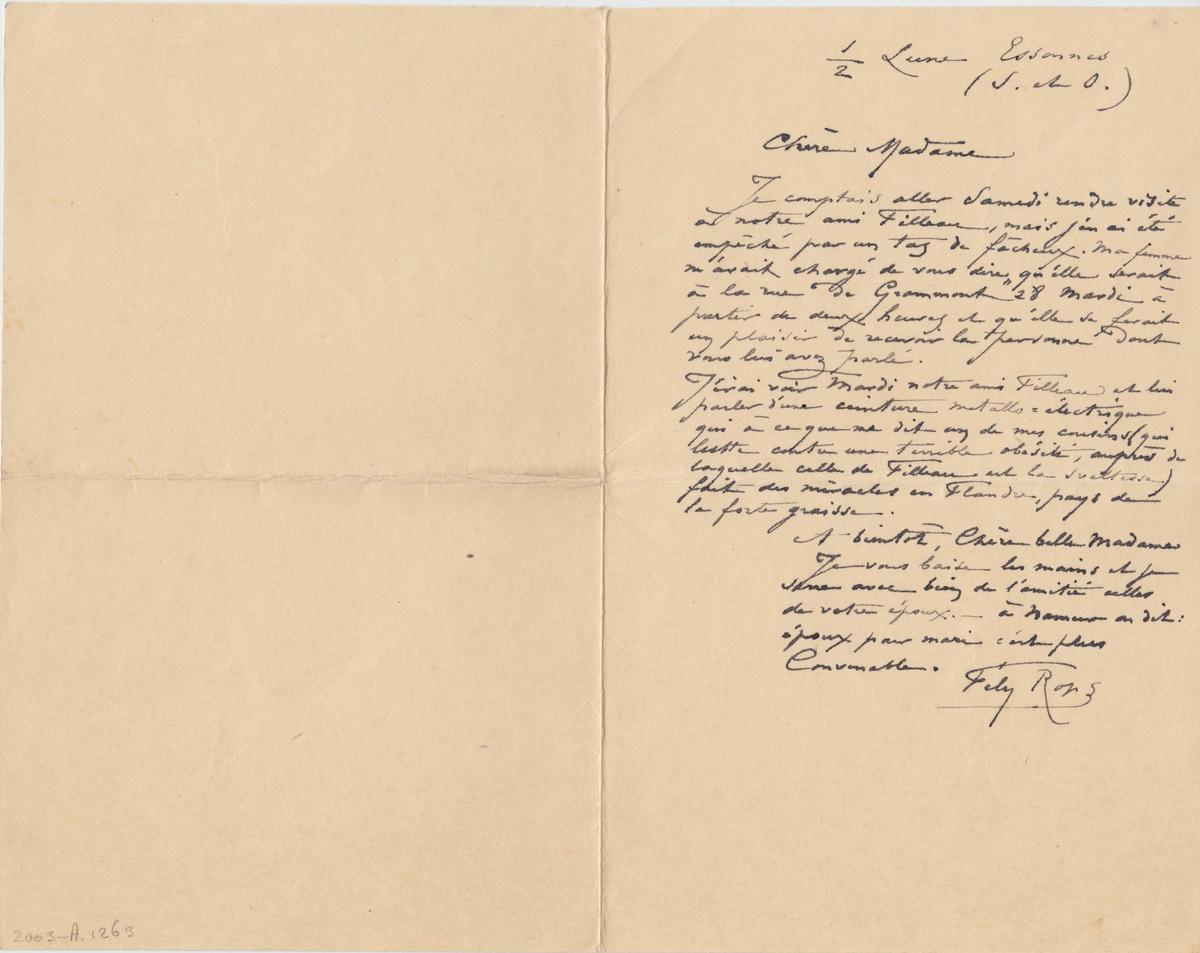 1/2 Lune Essonnes
(S. et O.)
Chère Madame
Je comptais aller Samedi rendre visite
à notre ami Filleau, mais j'en ai été
empêché par un tas de fâcheux. Ma femme
m'avait chargé de vous dire qu'elle serait
à la rue de Grammont 28 Mardi à
partir de deux heures et qu'elle se ferait
un plaisir de recevoir la personne dont
vous lui avez parlé.
J'irai voir Mardi notre ami Filleau et lui
parler d'une ceinture metallo=électrique
qui à ce que me dit un de mes cousins (qui
lutte contre une terrible obésité, auprès de
laquelle celle de Filleau est la sveltesse)
fait des miracles en Flandre, pays de
la forte graisse.
A bientôt, Chère belle Madame
Je vous baise les mains et je
serre avec bien de l'amitié celles
de votre époux. — à Namur on dit:
époux pour mari c'est plus
Convenable.
Fély Rops
2003-A.1263